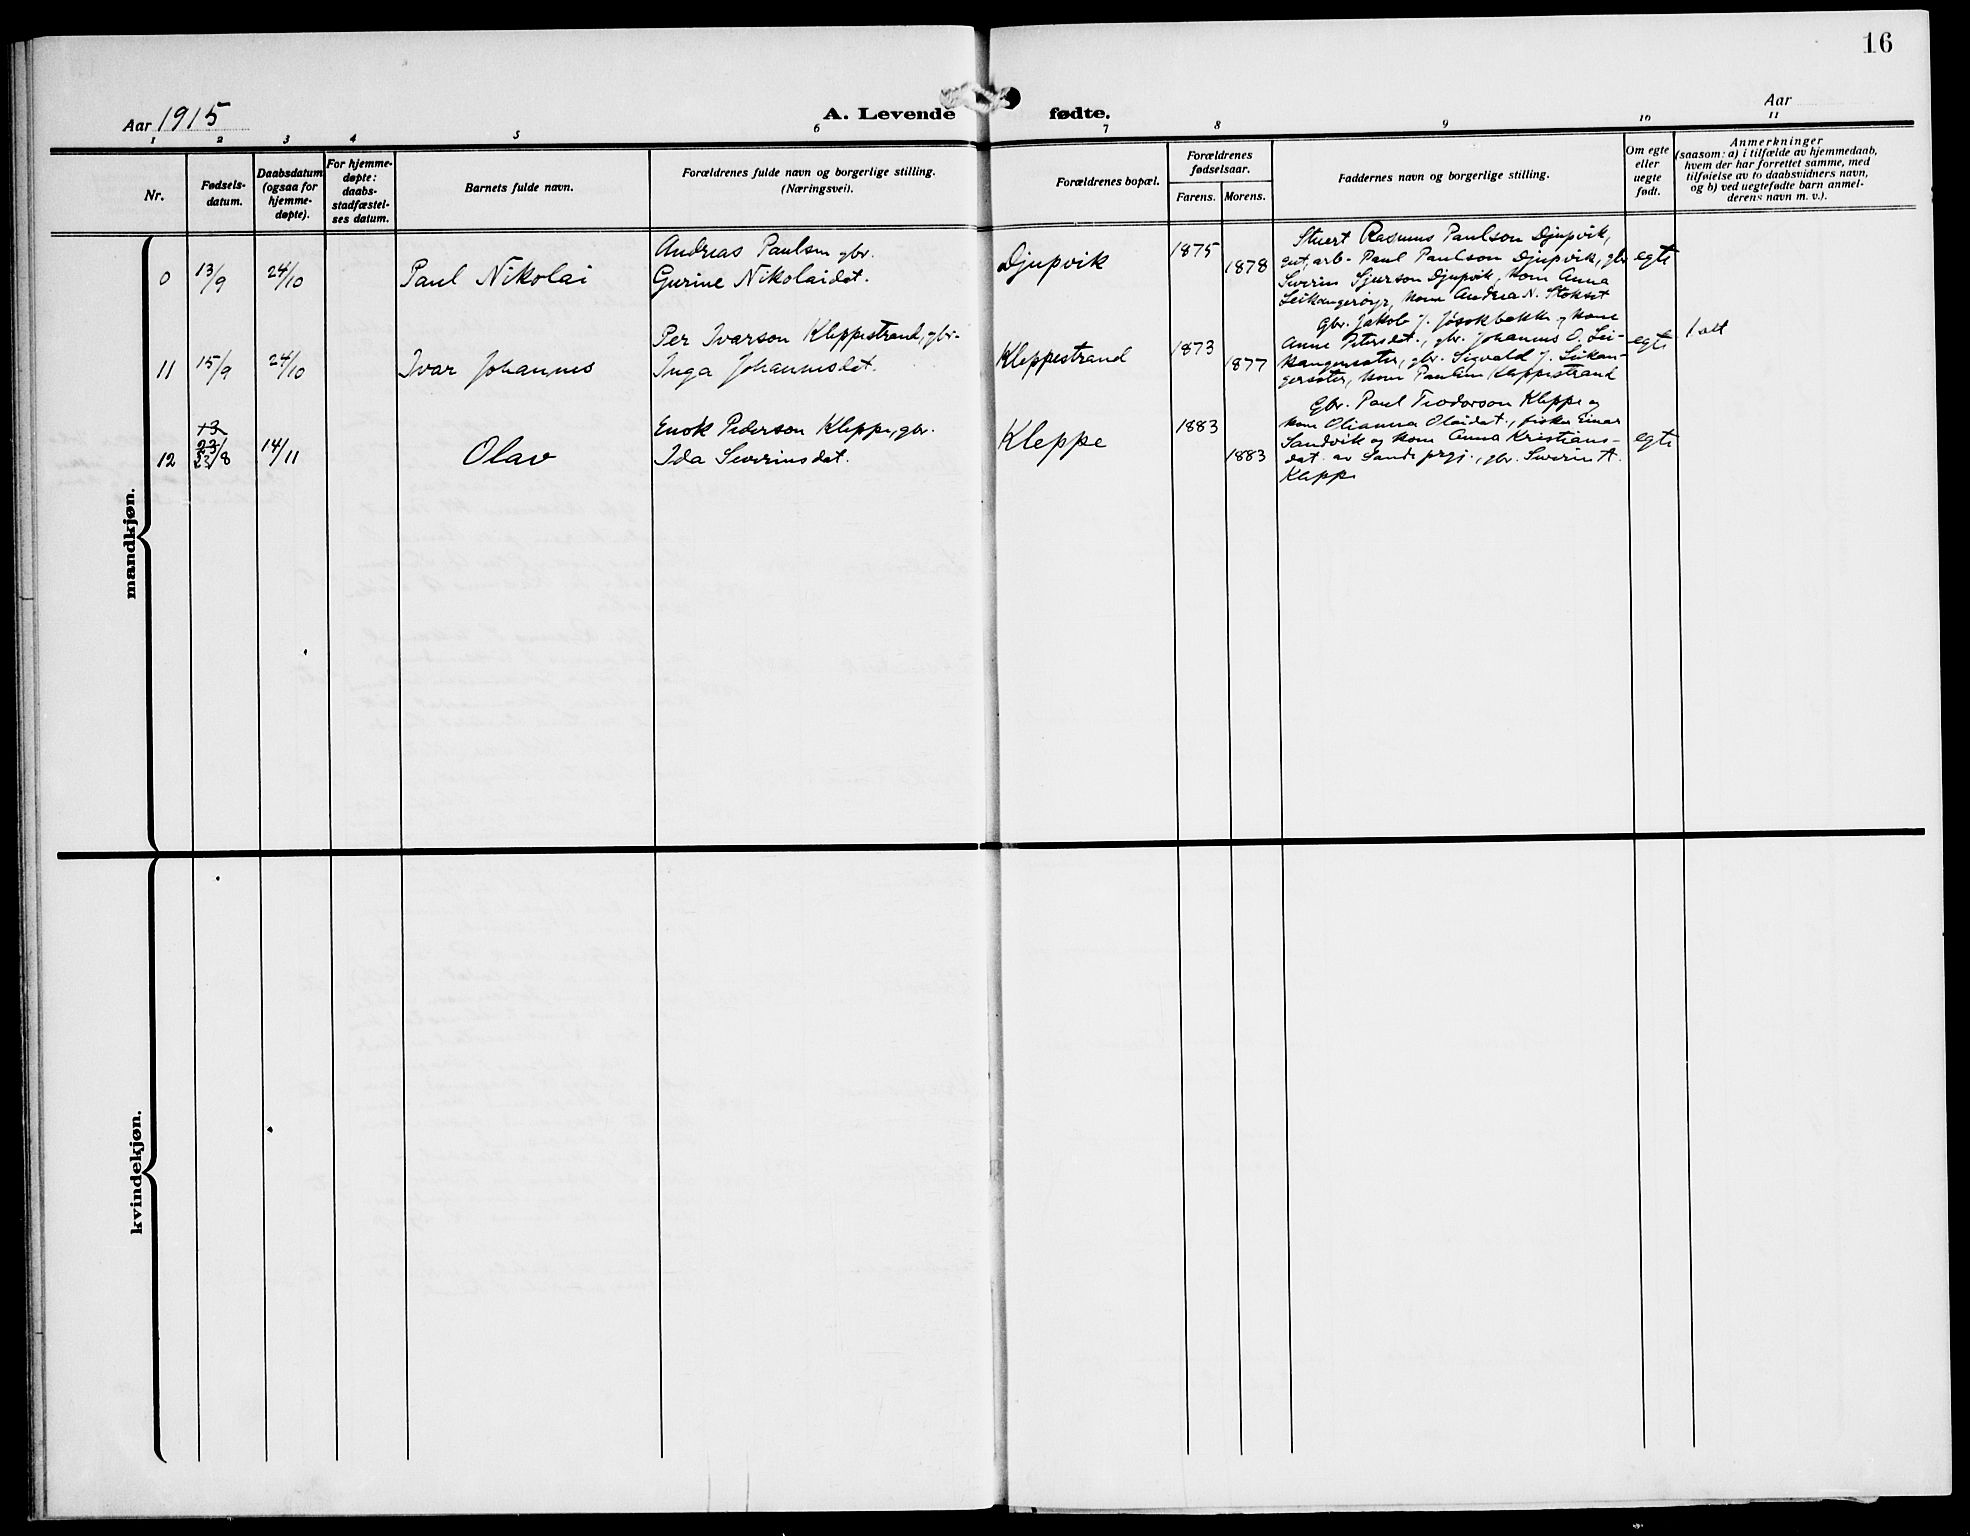 16
Aar 1915
A. Levende fødte.
Aar
1 2 3 4 5 6 7 8 9 10 11
Nr.
Fødsels-
datum.
Daabsdatum
(ogsaa for
hjemme-
døpte).
For hjemme-
døpte:
daabs-
stadfæstel-
ses datum.
Barnets fulde navn.
Forældrenes fulde navn og borgerlige stilling.
(Næringsvei).
Forældrenes bopæl.
Forældrenes
fødselsaar.
Farens. Morens.
Faddernes navn og borgerlige stilling.
Om egte
eller
uegte
født.
Anmerkninger
(saasom: a) i tilfælde av hjemmedaab,
hvem der har forrettet samme, med
tilføielse av to daabsvidners navn,
og b) ved uegtefødte barn anmel-
derens navn m. v.).
mandkjøn.
0 13/9 24/10 Paul Nikolai
Andreas Paulsen gbr.
Gurine Nikolaidat.
Djupvik
1875
1878
Stuert Rasmus Paulson Djupvik,
gut, arb- Paul Paulson Djupvik, gbr
Severin Sjurson Djupvik, kone Anna
Leikangerøyr, kone Andrea N. Stokset
egte
11 15/9 24/10 Ivar Johannes
Per Ivarson Kleppestrand, gbr.
Inga Johannesdat.
Kleppestrand
1873
1877
Gbr. Jakob J. Jøsokbakke og kone
Anne Petersdat., gbr. Johannes O. Lei-
kangersæter, gbr. Sigvald J. Leikan-
gersæter, kone Pauline Kleppestrand
egte
1 alt
12 23/8 14/11 Olav
Enok Pederson Kleppe, gbr.
Ida Severinsdat.
Kleppe
1883
1883
Gbr. Paul Teodorson Kleppe og
kone Olianna Olaidat., fisker Einar
Sandvik og kone Anna Kristians-
dat. av Sande prgj., gbr. Severin A.
Kleppe
egte
kvindekjøn.